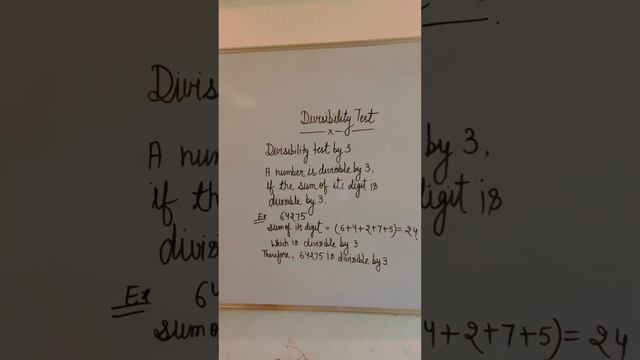 Divisibility Test
x
Divisibility test by 3
A number is divisible by 3,
if the sum of its digit is
divisible by 3.
Ex 64275
sum of its digit = (6+4+2+7+5)= 24
which is divisible by 3
Therefore, 64275 is divisible by 3